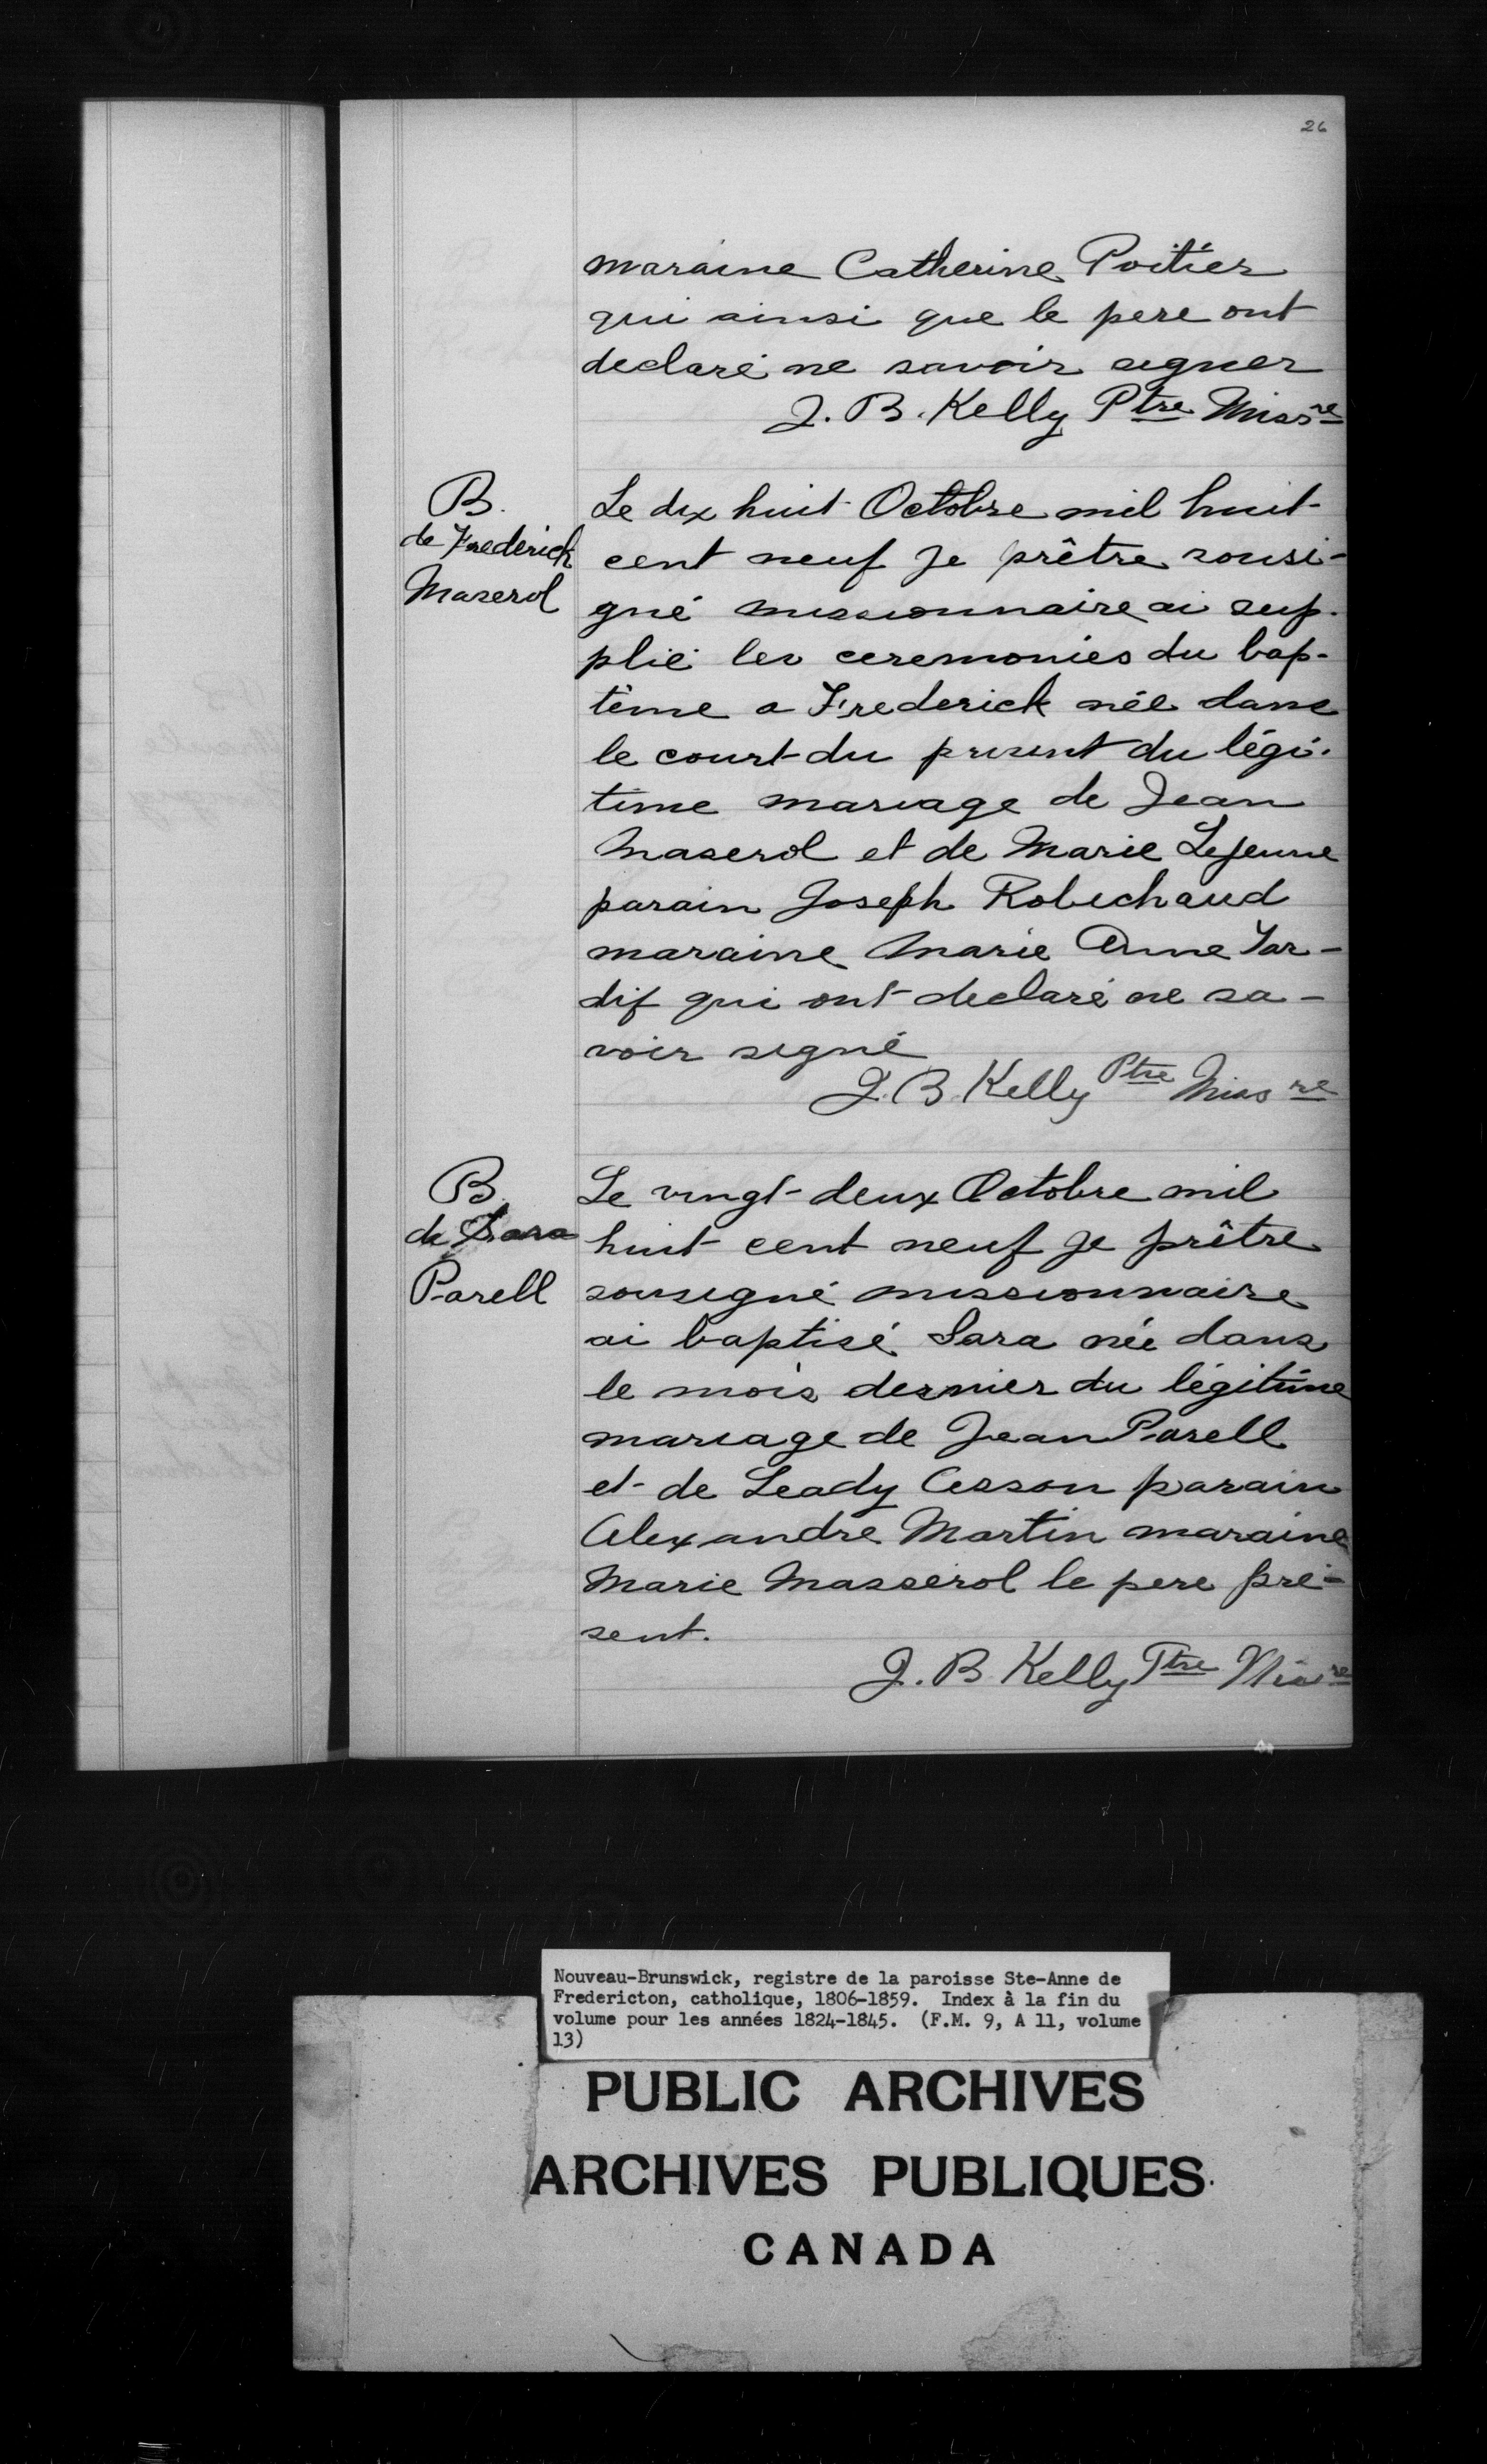 26
maraine Catherine Poitier
qui ainsi que le pere ont
declaré ne savoir signer
J. B. Kelly Ptre Missre
B.
de Frederick
Maserol
Le dix huit Octobre mil huit
cent neuf Je prêtre sousi-
gné missionnaire ai sup-
plié les ceremonies du bap-
tême a Frederick née dans
le court du present du légi-
time mariage de Jean
Maserol et de Marie Lejeune
parain Joseph Robichaud
maraine Marie Anne Tar-
dif qui ont declaré ne sa-
voir signé
J. B. Kelly Ptre Missre
B.
de Sara
Parell
Le vingt-deux Octobre mil
huit cent neuf je prêtre
sousigné missionnaire
ai baptisé Sara née dans
le mois dernier du légitime
mariage de Jean Parell
et de Leady Cesson parain
Alexandre Martin maraine
Marie Masserol le pere pre-
sent.
J. B Kelly Ptre Missre
Nouveau-Brunswick, registre de la paroisse Ste-Anne de
Fredericton, catholique, 1806-1859. Index à la fin du
volume pour les années 1824-1845. (F.M. 9, A 11, volume
13)
PUBLIC ARCHIVES
ARCHIVES PUBLIQUES
CANADA